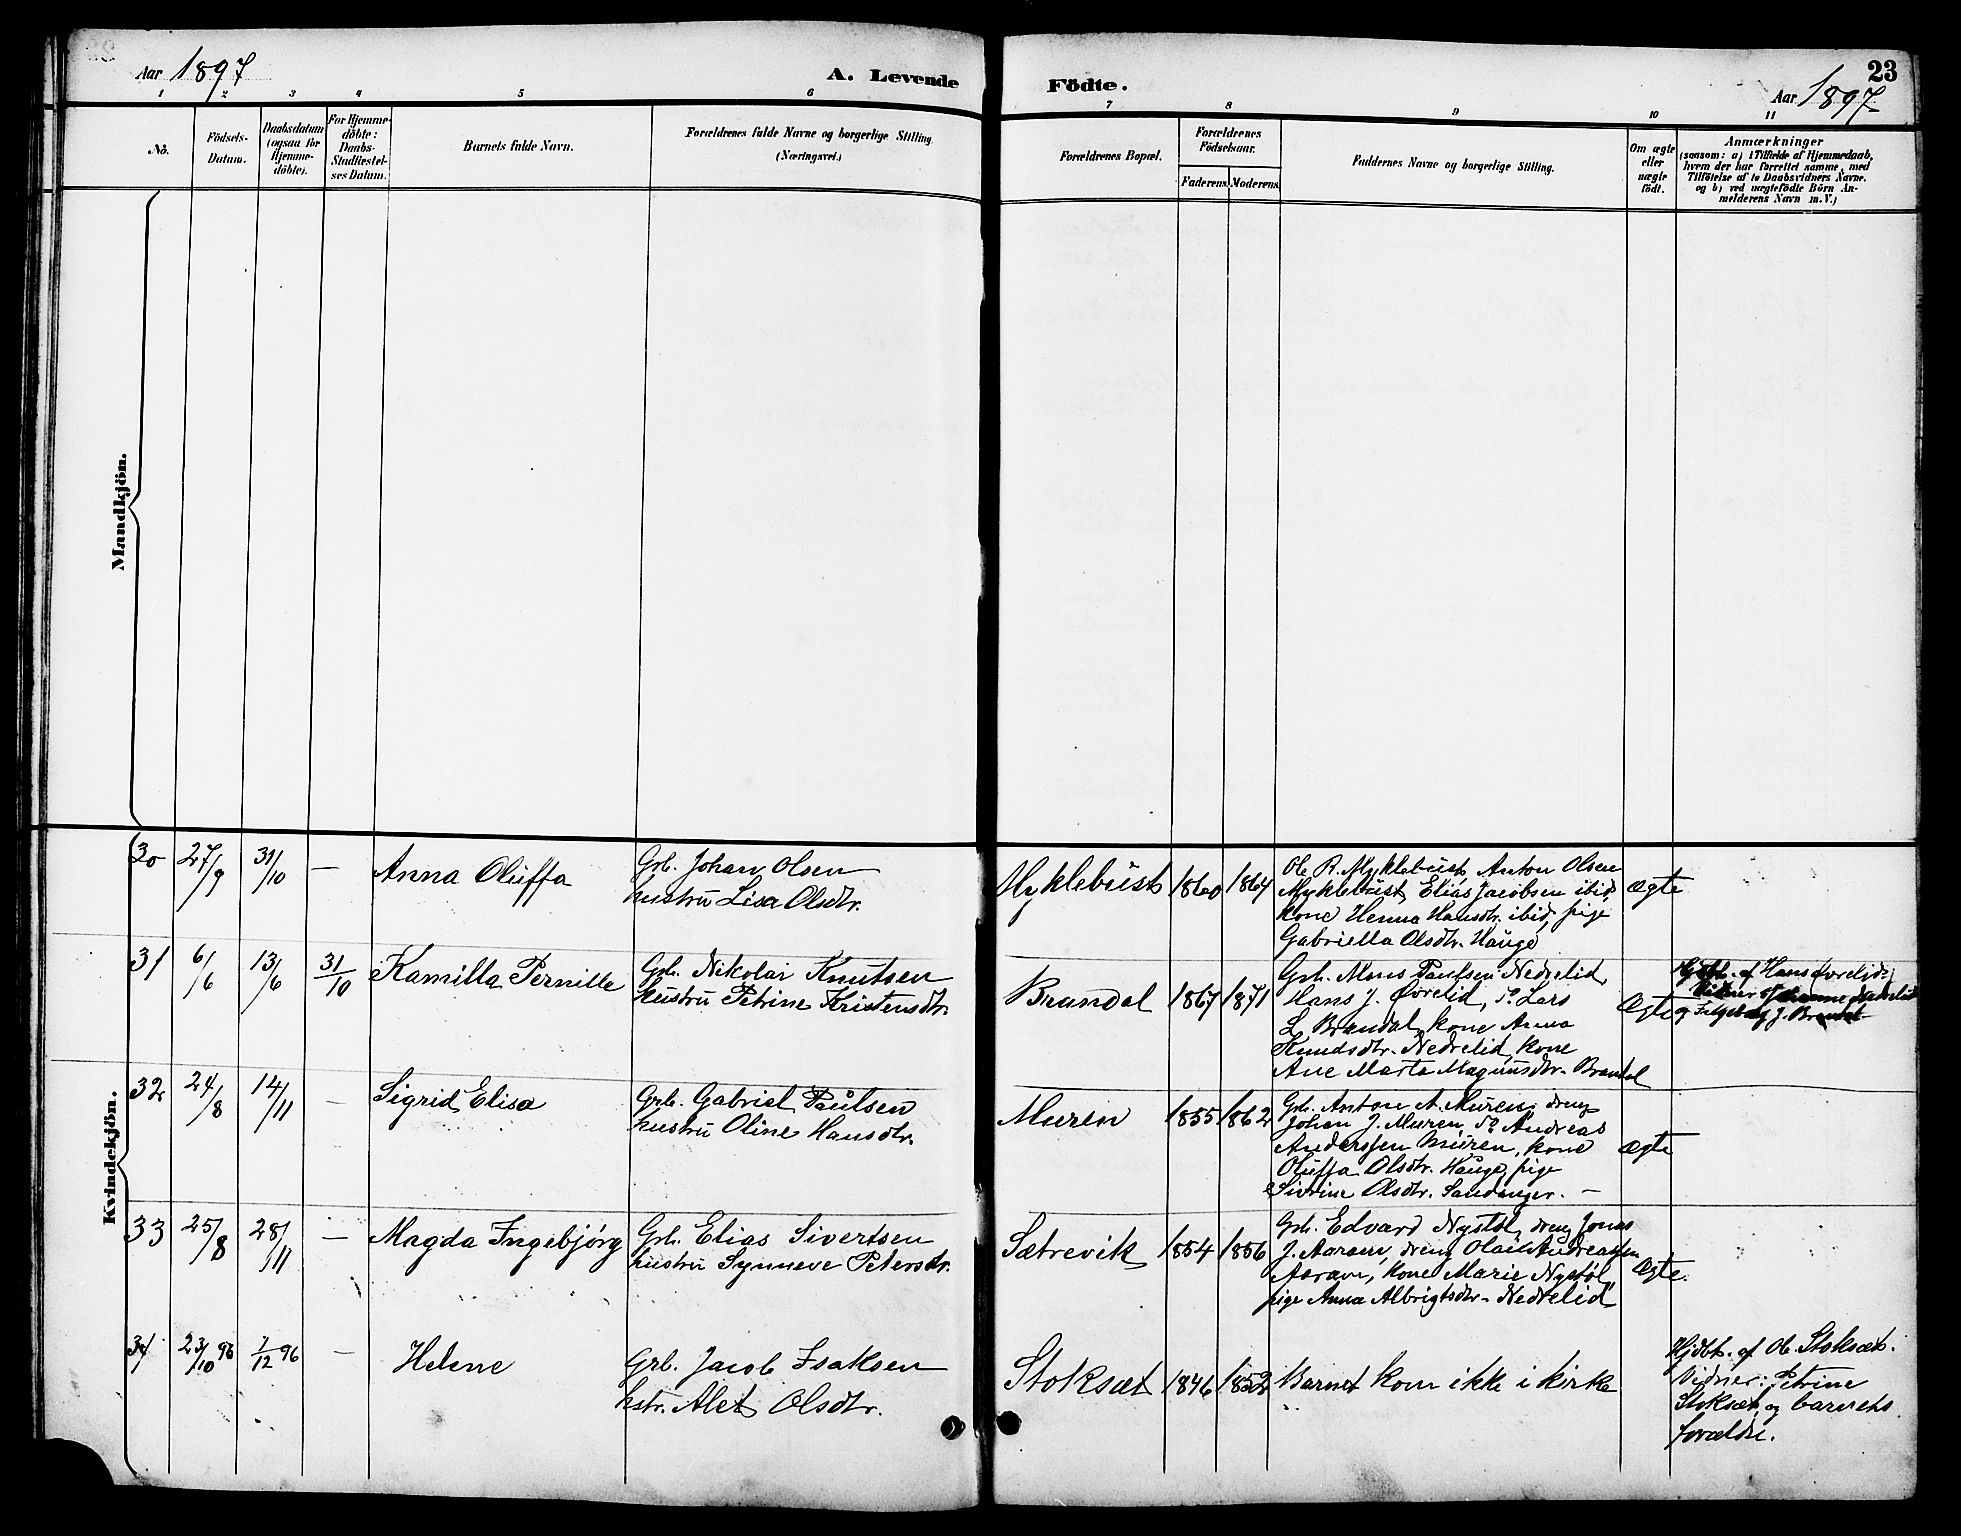 Aar 1897
A. Levende
Födte.
Aar 1897
23
1 2 3 4 5 6 7 8 9 10 11
No.
Födsels-
Datum.
Daabsdatum
(ogsaa for
Hjemme-
döbte).
For Hjemme-
döbte:
Daabs-
Stadfæstel-
ses Datum.
Barnets fulde Navn.
Forældrenes fulde Navne og borgerlige Stilling
(Næringsvei.)
Forældrenes Bopæl.
Forældrenes
Födselsaar.
Faderens.
Moderens.
Faddernes Navne og borgerlige Stilling.
Om ægte
eller
uægte
födt.
Anmærkninger
(saasom: a) i Tilfælde af Hjemmedaab,
hvem der har forrettet samme, med
Tilföielse af to Daabsvidners Navne.
og b) ved uægtefödte Börn An-
melderens Navn m.V.)
Mandkjön.
Kvindekjön.
30 27/9 31/10 — Anna Oluffa
Grb. Johan Olsen
hustru Lisa Olsdtr.
Myklebust 1860 1864
Ole R. Myklebust, Anton Olsen
Myklebust, Elias Jacobsen ibid,
kone Henna Hansdtr. ibid, pige
Gabriella Olsdtr. Hauge
Ægte
31 6/6 13/6 31/10 Kamilla Pernille
Grb. Nikolai Knutsen
hustru Petrine Kristensdtr.
Brandal 1867 1871
Grb. Mons Paulsen Nedrelid,
Hans J. Øvrelid, do Lars
L. Brandal, kone Anna
Knudsdtr. Nedrelid, kone
Ane Marta Magnusdtr. Brandal
Ægte
Hjdbt. af Hans Øvrelid.
Vidner: Johanne Nedrelid
og J. Brandal
32 24/8 14/11 — Sigrid Elisa
Grb. Gabriel Paulsen
hustru Oline Hansdtr.
Muren 1855 1862
Grb. Anton A. Muren, dreng
Johan J. Muren, do Andreas
Anderssen Muren, kone
Oluffa Olsdtr. Hauge, pige
Sivrine Olsdtr. Sandanger. —
Ægte
33 25/8 28/11 — Magda Ingebjørg
Grb. Elias Sivertsen
hustru Synneve Petersdtr.
Sætrevik 1854 1856
Grb. Edvard Nystøl, dreng Jonas
J. Aaram, dreng Olai Andreassen
Aaram, kone Marie Nystøl,
pige Anna Albrigtsdtr. Nedrelid
Ægte.
34 23/10 96 7/12 96 — Helene
Grb. Jacob Isaksen
hstr. Alet Olsdtr.
Stoksæt 1846 1852 Barnet kom ikke i kirke
Hjdbt. af Ole Stoksæt.
Vidner: Petrine
Stoksæt, og barnets
forældre.